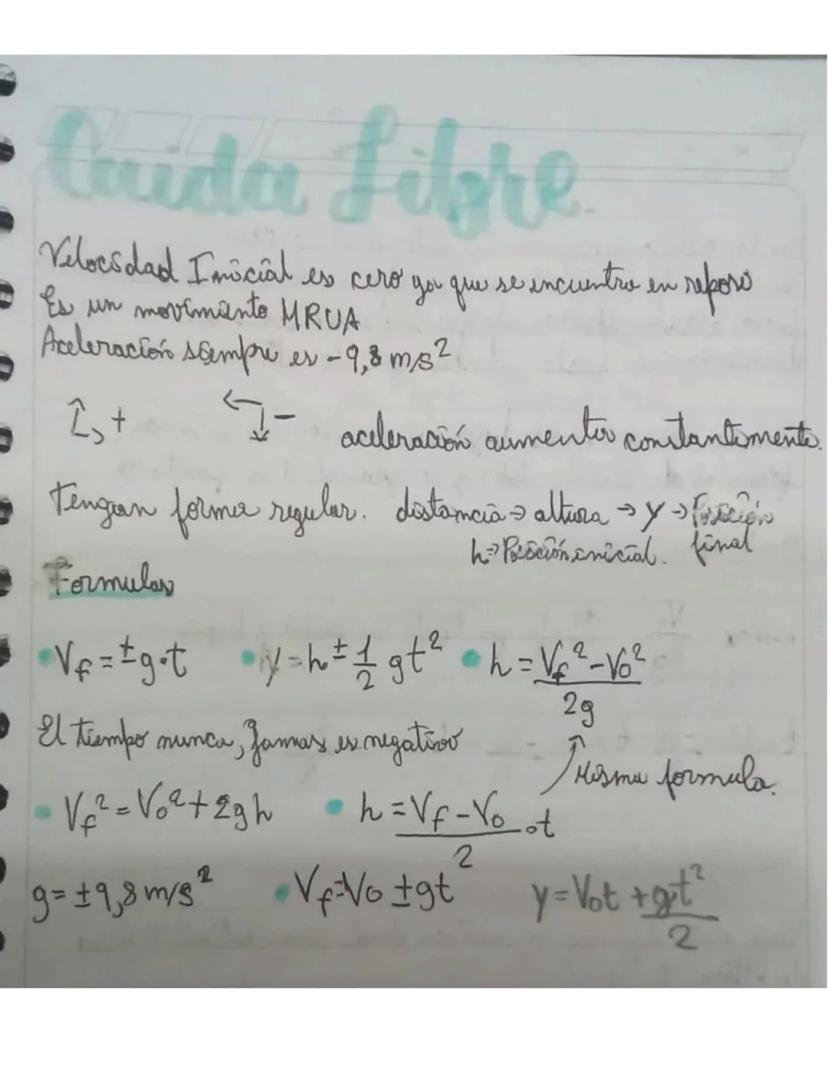 Caida Libre
Velocidad Inicial es cero ya que se encuentra en reposo
Es un movimiento MRUA
Aceleración siempre es -9,8 m/s²
↑→ + ←↓ - aceleración aumenta constantemente.
Tengan forma regular. distancia → altura → y → Posición final
h → Posición inicial.
Formulas
• Vf = ±g·t • y = h ± 1/2 gt² • h = (Vf² - Vo²)/2g
El tiempo nunca, jamas es negativo
Misma formula.
• Vf² = Vo² + 2gh • h = (Vf - Vo)/2 · t
g = ±9,8 m/s² • Vf = Vo ± gt y = Vot + gt²/2